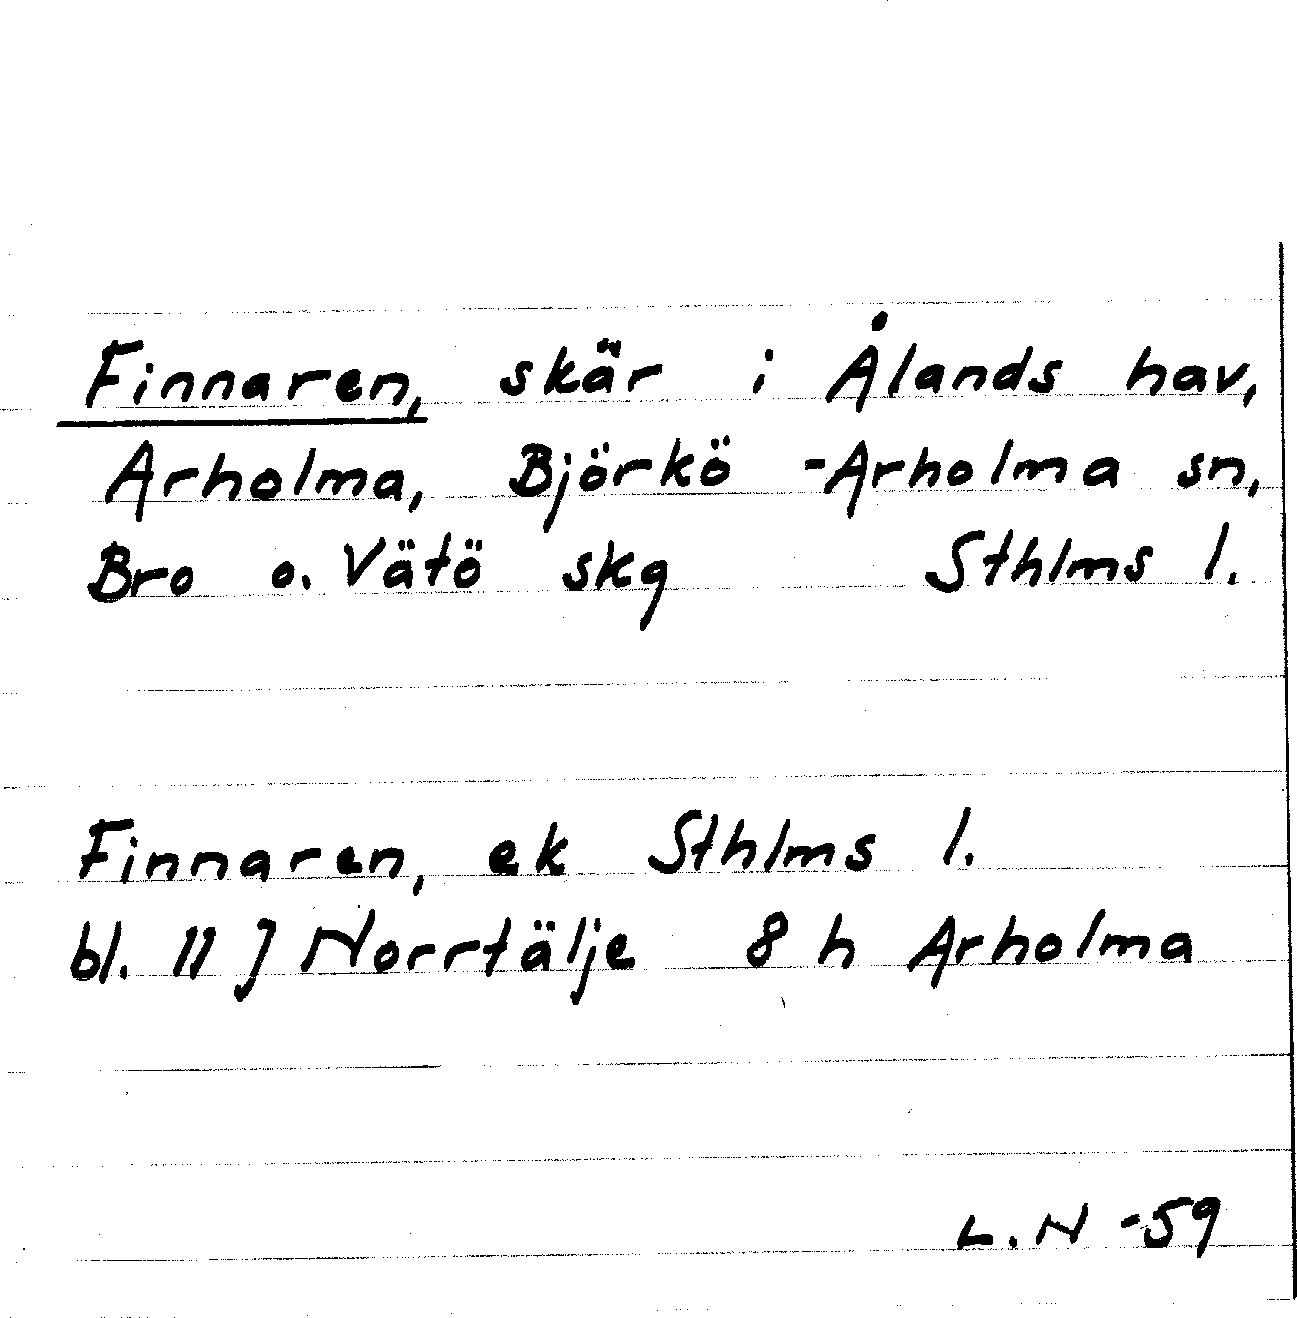 Finnaren, skär i Ålands hav,
Arholma, Björkö -Arholma sn,
Bro o. Vätö skg Sthlms l.
Finnaren, ek Sthlms l.
bl. 11 J Norrtälje 8 h Arholma
L. N -59